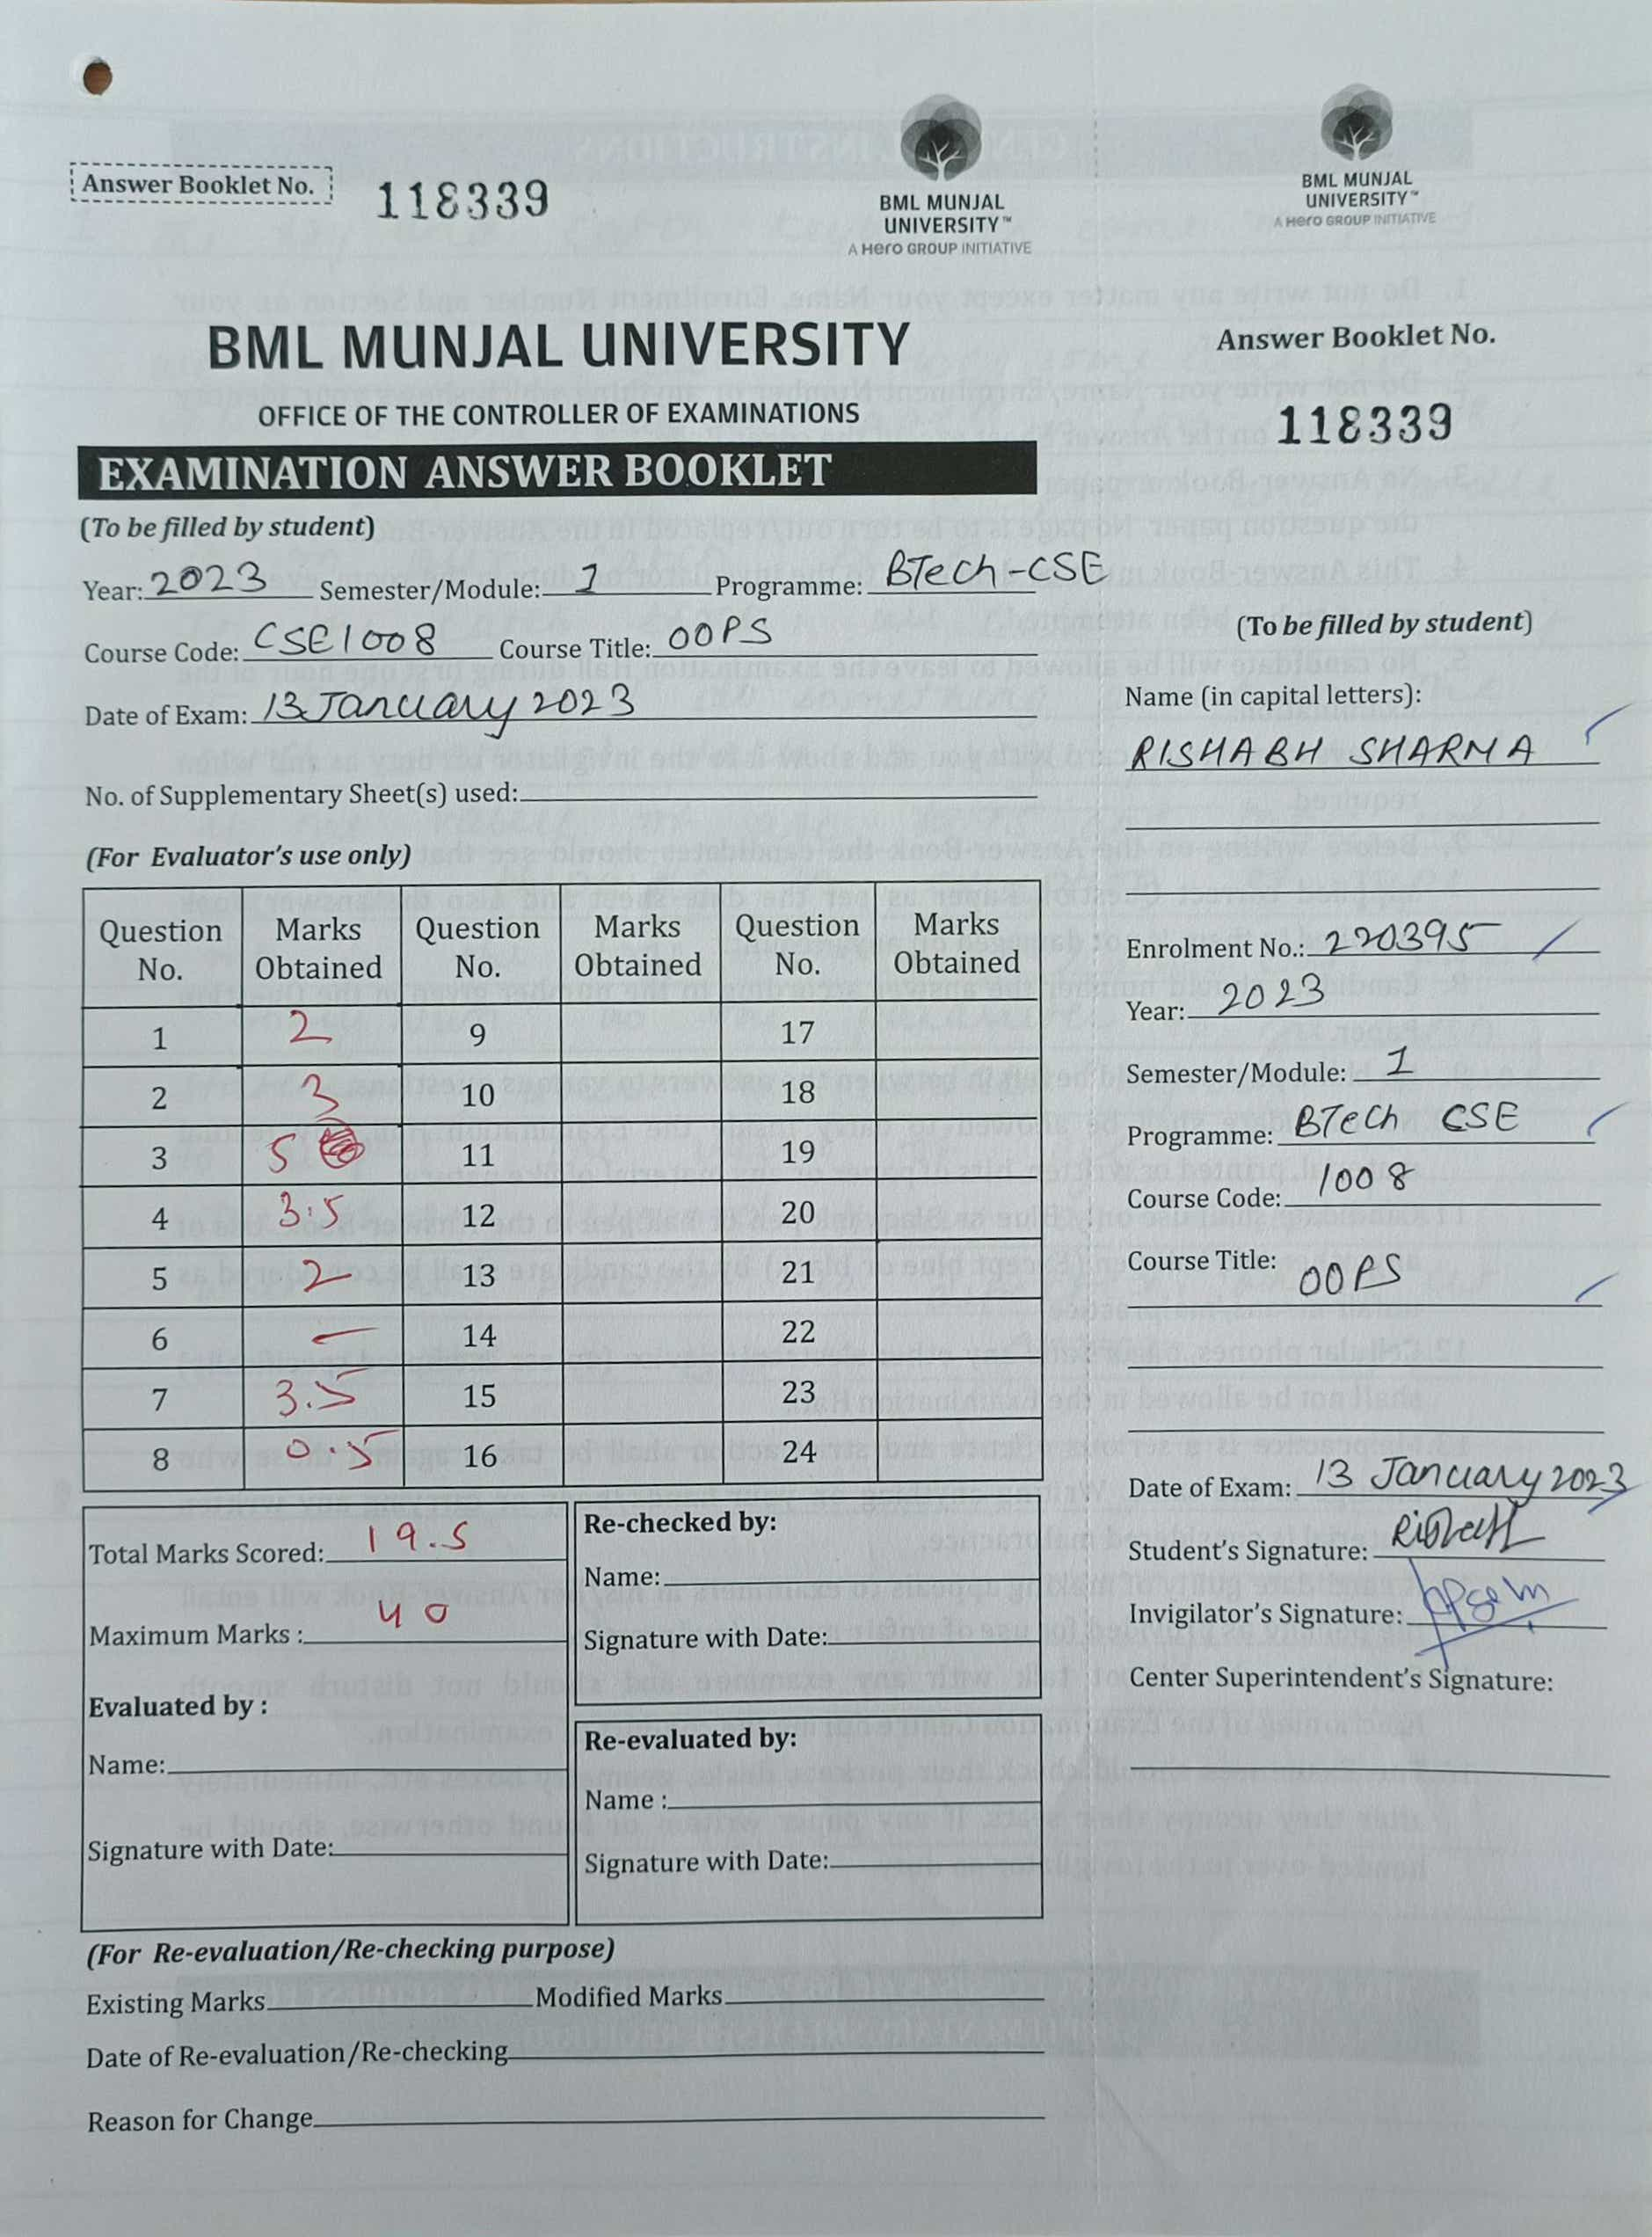 Answer Booklet No. 118339
BML MUNJAL
UNIVERSITY™
A Hero GROUP INITIATIVE
BML MUNJAL UNIVERSITY
OFFICE OF THE CONTROLLER OF EXAMINATIONS
EXAMINATION ANSWER BOOKLET
(To be filled by student)
Year: 2023 Semester/Module: 1 Programme: BTech-CSE
Course Code: CSE1008 Course Title: OOPS
Date of Exam: 13 January 2023
No. of Supplementary Sheet(s) used:
(For Evaluator's use only)
Question No. Marks Obtained Question No. Marks Obtained Question No. Marks Obtained
1 2 9 17
2 3 10 18
3 5 11 19
4 3.5 12 20
5 2 13 21
6 – 14 22
7 3.5 15 23
8 0.5 16 24
Total Marks Scored: 19.5
Maximum Marks : 40
Evaluated by :
Name:
Signature with Date:
Re-checked by:
Name:
Signature with Date:
Re-evaluated by:
Name :
Signature with Date:
(For Re-evaluation/Re-checking purpose)
Existing Marks Modified Marks
Date of Re-evaluation/Re-checking
Reason for Change
BML MUNJAL
UNIVERSITY™
A Hero GROUP INITIATIVE
Answer Booklet No.
118339
(To be filled by student)
Name (in capital letters):
RISHABH SHARMA
Enrolment No.: 220395
Year: 2023
Semester/Module: 1
Programme: BTech CSE
Course Code: 1008
Course Title: OOPS
Date of Exam: 13 January 2023
Student's Signature:
Invigilator's Signature:
Center Superintendent's Signature: